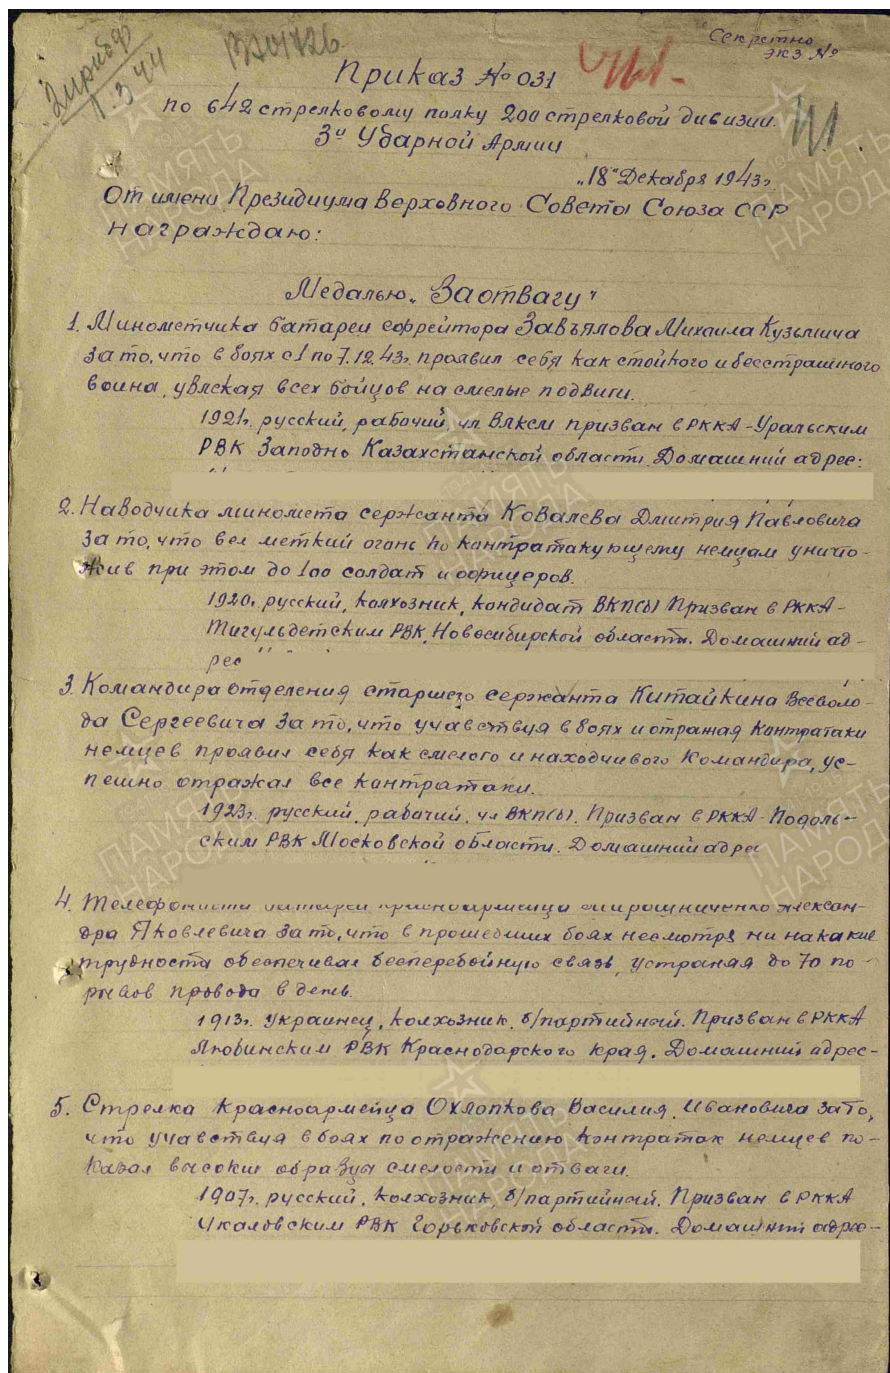 Секретно
экз №
Приказ № 031
по 642 стрелковому полку 200 стрелковой дивизии.
3й Ударной Армии
„18" Декабря 1943г.
От имени Президиума Верховного Совета Союза ССР
награждаю:
Медалью „За отвагу"
1. Минометчика батареи ефрейтора Завъялова Михаила Кузьмича
за то, что в боях с 1 по 7.12.43г. проявил себя как стойкого и бесстрашного
воина, увлекая всех бойцов на смелые подвиги.
1921г. русский, рабочий, чл. ВЛКСМ призван в РККА - Уральским
РВК Заподно Казахстанской области. Домашний адрес:
2. Наводчика миномета сержанта Ковалева Дмитрия Павловича
за то, что вел меткий огонь по контратакующему немцам уничто-
жив при этом до 100 солдат и офицеров.
1920г. русский, колхозник, кондидат ВКП(б) Призван в РККА -
Тигульдетским РВК, Новосибирской области. Домашний ад-
рес
3. Командира отделения старшего сержанта Китайкина Всеволо-
да Сергеевича за то, что учавствуя в боях и отражая контратаки
немцев проявил себя как смелого и находчивого командира, ус-
пешно отражал все контратаки.
1923г. русский, рабочий, чл ВКП(б). Призван в РККА - Подоль-
ским РВК Московской области. Домашний адрес
4. Телефониста батареи красноармейца Мирошниченко Алексан-
дра Яковлевича за то, что в прошедших боях несмотря ни на какие
трудности обеспечивал бесперебойную связь, устраняя до 70 по-
рывов провода в день.
1913г. украинец, колхозник, б/партийный. Призван в РККА
РВК Краснодарского края. Домашний адрес-
5. Стрелка красноармейца Охлопкова Василия Ивановича за то,
что учавствуя в боях по отражению контратак немцев по-
казал высокие образцы смелости и отваги.
1907г. русский, колхозник, б/партийный. Призван в РККА
Чкаловским РВК Горьковской области. Домашний адрес-
ПАМЯТЬ
НАРОДА